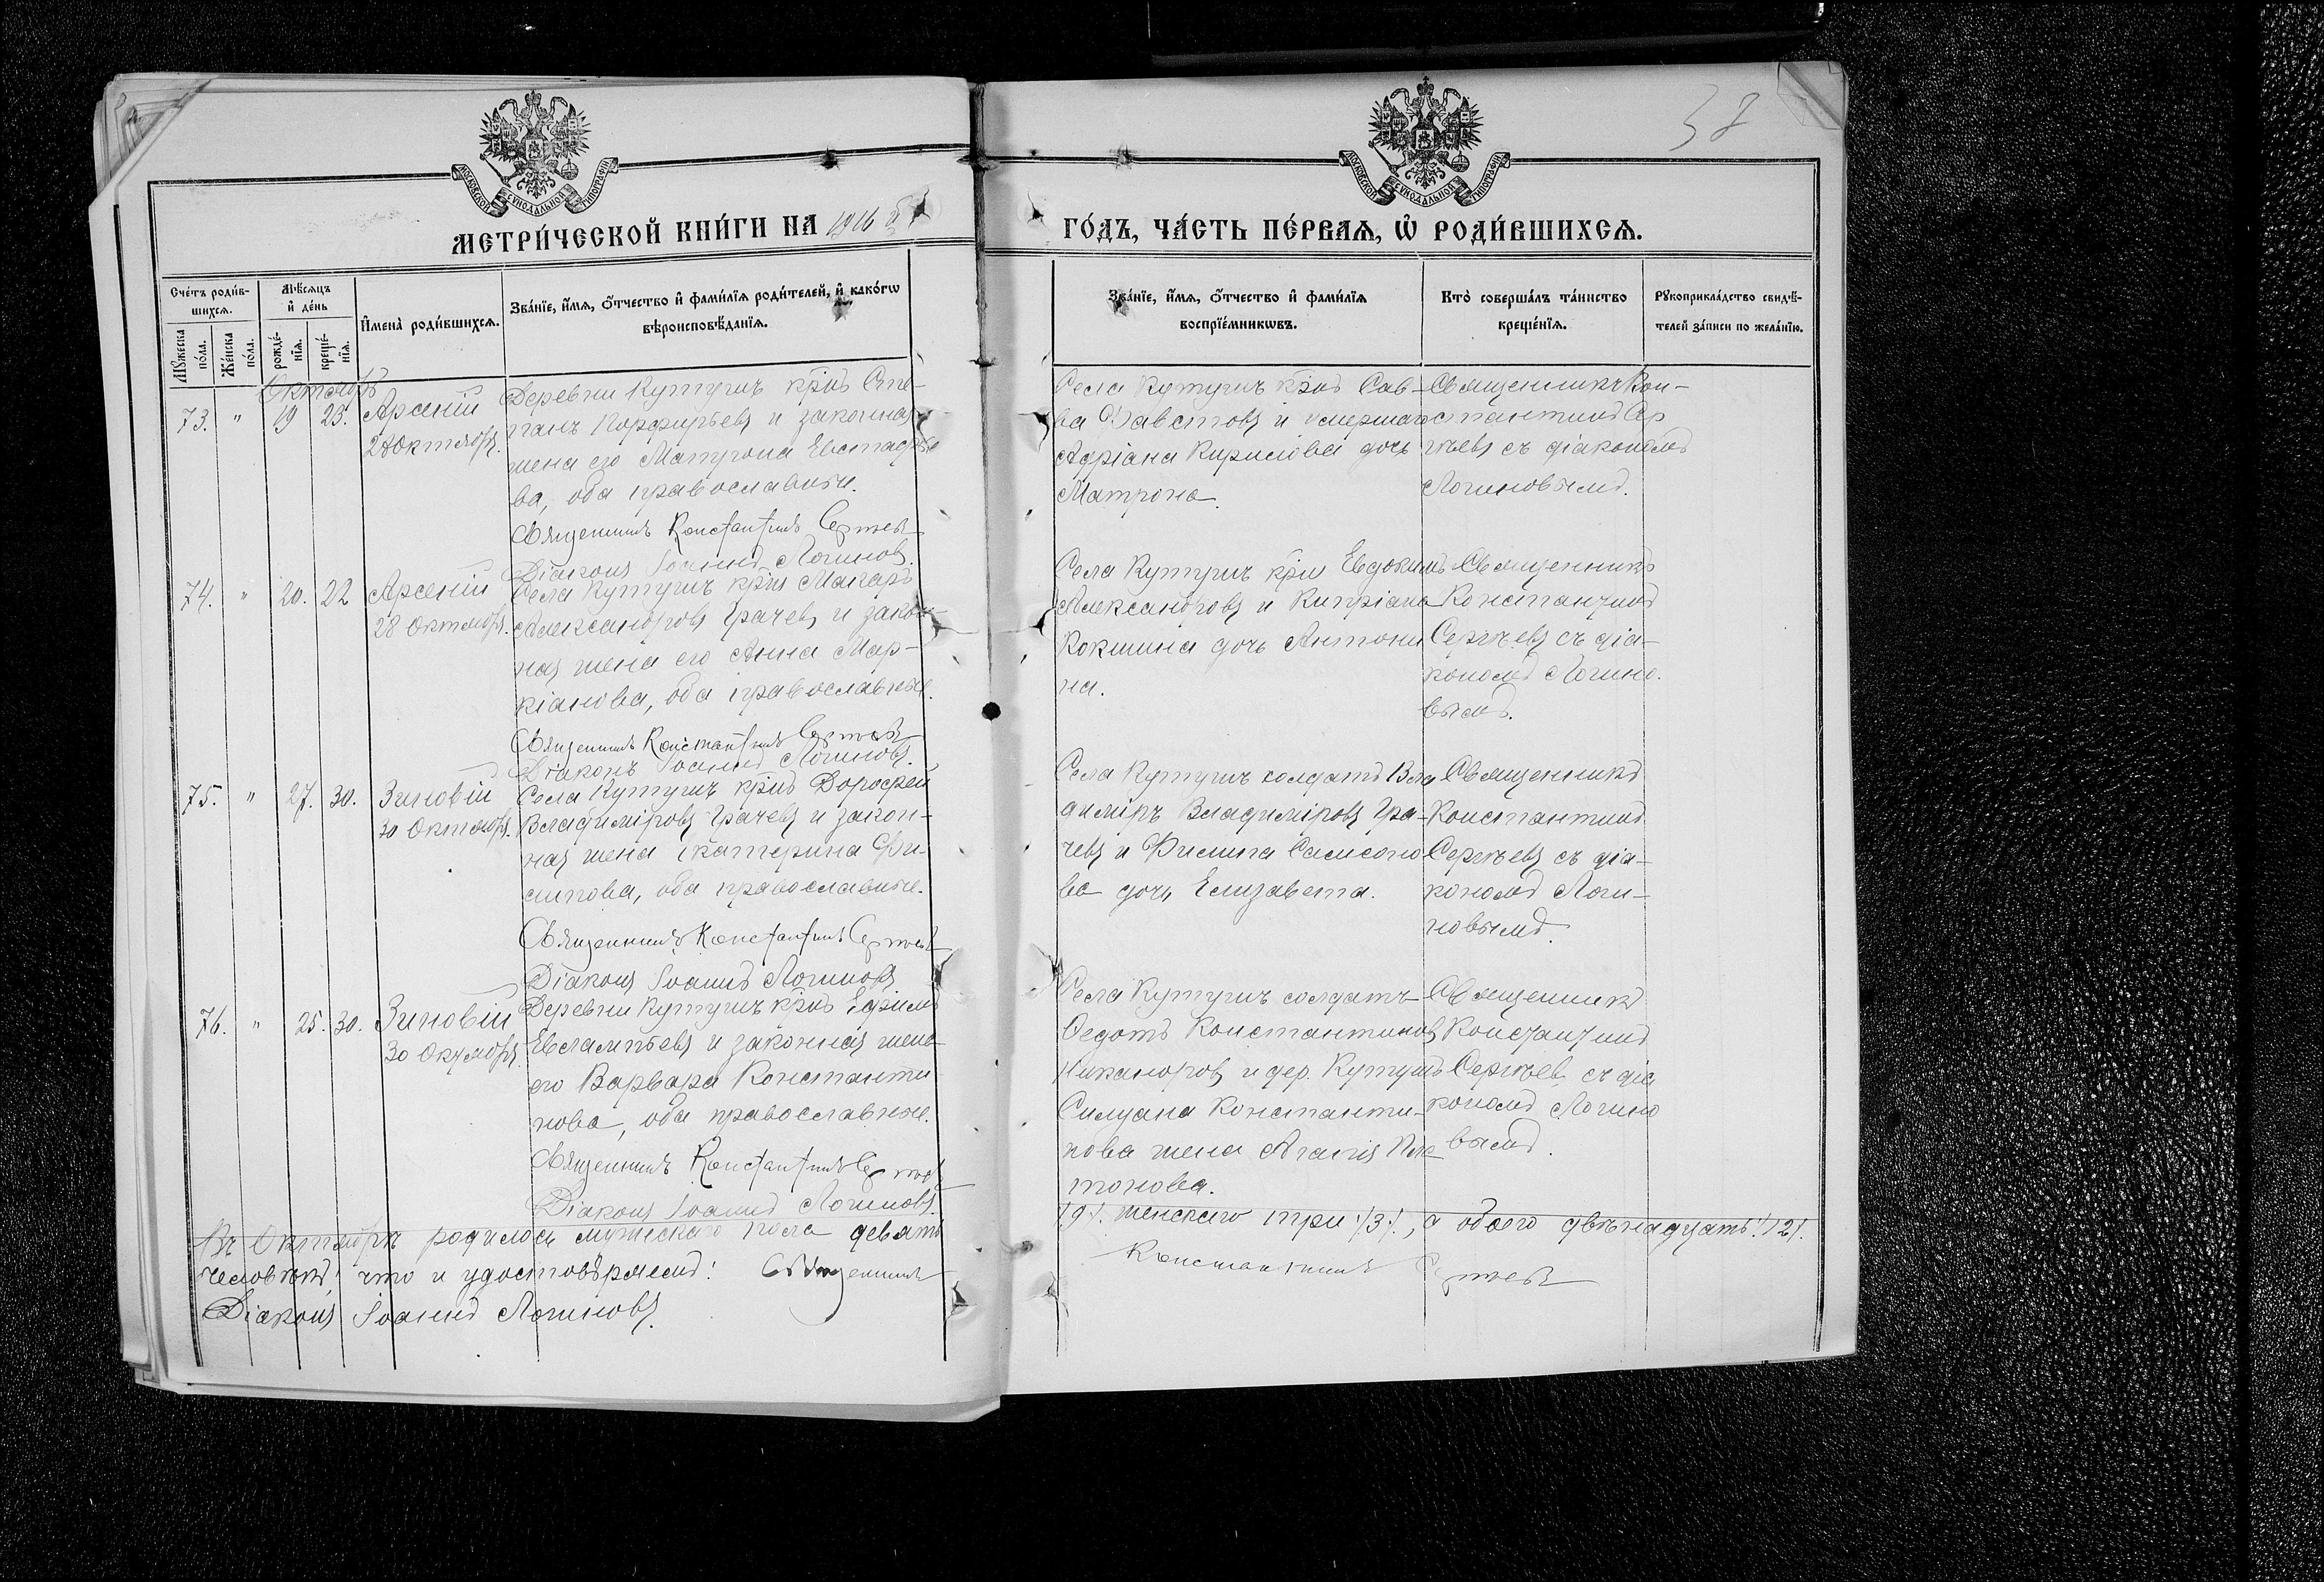 38
МОСКОВСКОЙ СѴНОДАЛЬНОЙ ТИПОГРАФІИ
МОСКОВСКОЙ СѴНОДАЛЬНОЙ ТИПОГРАФІИ
МЕТРИ́ЧЕСКОЙ КНИ́ГИ НА 1916 й
ГО́ДЪ, ЧА́СТЬ ПЕ́РВАѦ, Ѡ РОДИ́ВШИХСѦ.
Сче́тъ роди́в-
шихсѧ.
Мꙋ́жеска по́ла.
Же́нска по́ла.
Мѣ́сѧцъ
и҆ де́нь
рожде́-
нїѧ.
креще́-
нїѧ.
И҆мена̀ роди́вшихсѧ.
Зва́нїе, и҆́мѧ, ѻ҆́тчество и҆ фами́лїѧ роди́телей, и҆ како́гѡ
вѣроисповѣ́данїѧ.
Зва́нїе, и҆́мѧ, ѻ҆́тчество и҆ фами́лїѧ
воспрїе́мникѡвъ.
Кто̀ соверша́лъ та́инство
креще́нїѧ.
Рꙋкоприкла́дство свидѣ́-
телей за́писи по жела́нїю.
Октябрь
73. " 19 23. Арсеній
28 Октября.
Деревни Кутушъ кр̃нъ Сте-
панъ Порфирьевъ и законная
жена его Матрона Евстафье
ва, оба православные.
Священникъ Константинъ Сергѣевъ
Діаконъ Іоаннъ Логиновъ.
Села Кутушъ кр̃нъ Сав-
ва Фавстовъ и умершаго
Адріана Кирилова дочь
Матрона.
Священникъ Кон-
стантинъ Сер
гѣевъ съ діакономъ
Логиновымъ.
74. " 20. 22 Арсеній
28 Октября.
Села Кутушъ кр̃нъ Макаръ
Александровъ Грачевъ и закон-
ная жена его Анна Мар-
кіанова, оба православные.
Священникъ Константинъ Сергѣевъ
Діаконъ Іоаннъ Логиновъ.
Села Кутушъ кр̃нъ Евдокимъ
Александровъ и Кипріана
Кокшина дочь Антони
на.
Священникъ
Константинъ
Сергѣевъ съ діа-
кономъ Логино-
вымъ.
75. " 27. 30. Зиновій
30 Октября.
Села Кутушъ кр̃нъ Дорофей
Владиміровъ Грачевъ и закон-
ная жена Екатерина Фи-
липова, оба православные.
Священникъ Константинъ Сергѣевъ
Діаконъ Іоаннъ Логиновъ
Села Кутушъ солдатъ Вла
диміръ Владиміровъ Гра-
чевъ и Филипа Самсоно
ва дочь Елизавета.
Священникъ
Константинъ
Сергѣевъ съ діа-
кономъ Логи-
новымъ.
76. " 25. 30. Зиновій
30 Октября.
Деревни Кутушъ кр̃нъ Ефимъ
Евлампьевъ и законная жена
его Варвара Константи
нова, оба православные.
Священникъ Константинъ Сергѣевъ
Діаконъ Іоаннъ Логиновъ.
Села Кутушъ солдатъ
Ѳедотъ Константиновъ
Никаноровъ и дер. Кутушъ
Силуана Константи-
нова жена Агапія Пла
тонова.
Священникъ
Константинъ
Сергѣевъ съ діа
кономъ Логино
вымъ.
Въ Октябрѣ родилось мужескаго пола девять
/9/. женскаго три /3/, а обоего двѣнадцать /12/.
человѣкъ, что и удостовѣряемъ: Священникъ
Константинъ Сергѣевъ
Діаконъ Іоаннъ Логиновъ.